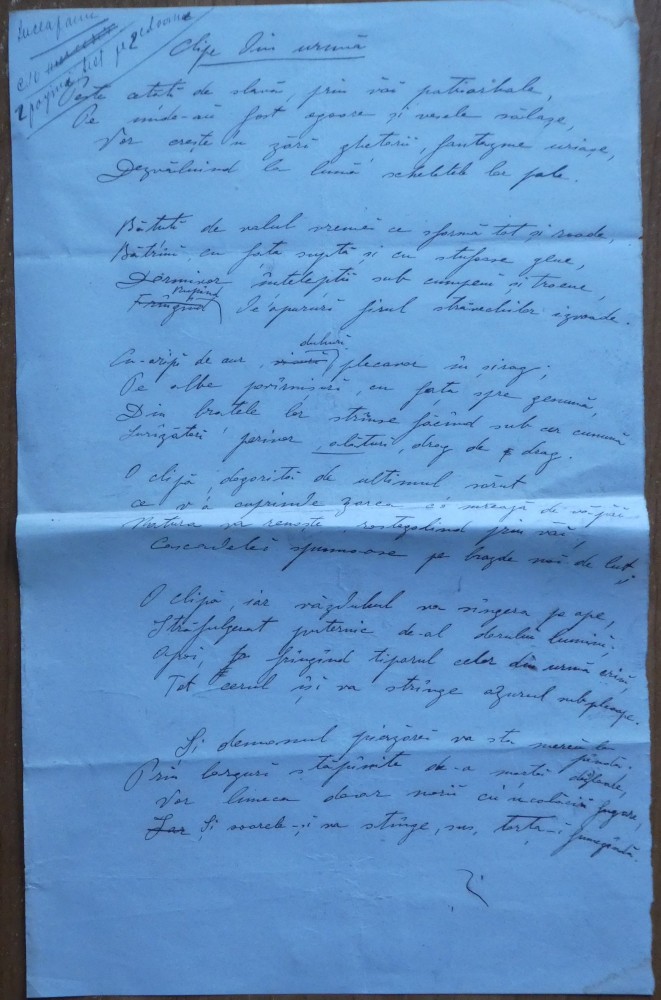 Luceafărul
2 pagini
Clipe din urmă
Peste atâta de slavă, prin văi patriarhale,
Pe unde-au fost ogoare și vesele sălașe,
Vor crește'n zări ghețarii, fantasme uriașe,
Dezvăluind la lună scheletele lor pale.
Bătută de valul vremii ce sfarmă tot și roade,
Bătrînii, cu fața suptă și cu stufoase glue,
Dormivor înțelepții sub cumpeni și troene,
Frîngînd de'apururi firul străvechilor izvoade.
Cu-aripi de aur, duhuri pleca-vor în șirag;
Pe albe, cu fața spre genună,
Din brațele lor strînse făcînd sub cer cunună
alături, drag de drag.
O clipă, dogorită de ultimul sărut
ce v'a cuprinde zarea
Natura va renaște, rostogolind prin văi,
Cascadele spumoase pe brazde noi de lut,
O clipă, iar văzduhul va sîngera pe ape,
Străfulgerat puternic de-al dorului lumini,
Apoi, frîngînd tiparul celor din urmă
Tot cerul își va strînge azurul sub pleoape.
Și demonul pierzării va sta mereu la pîndă
Prin larguri stăpînite de-a morții
Vor luneca doar norii cu'ncolăciri fugare,
Iar Și soarele-și va stinge, sus, torța-i fumegîndă.